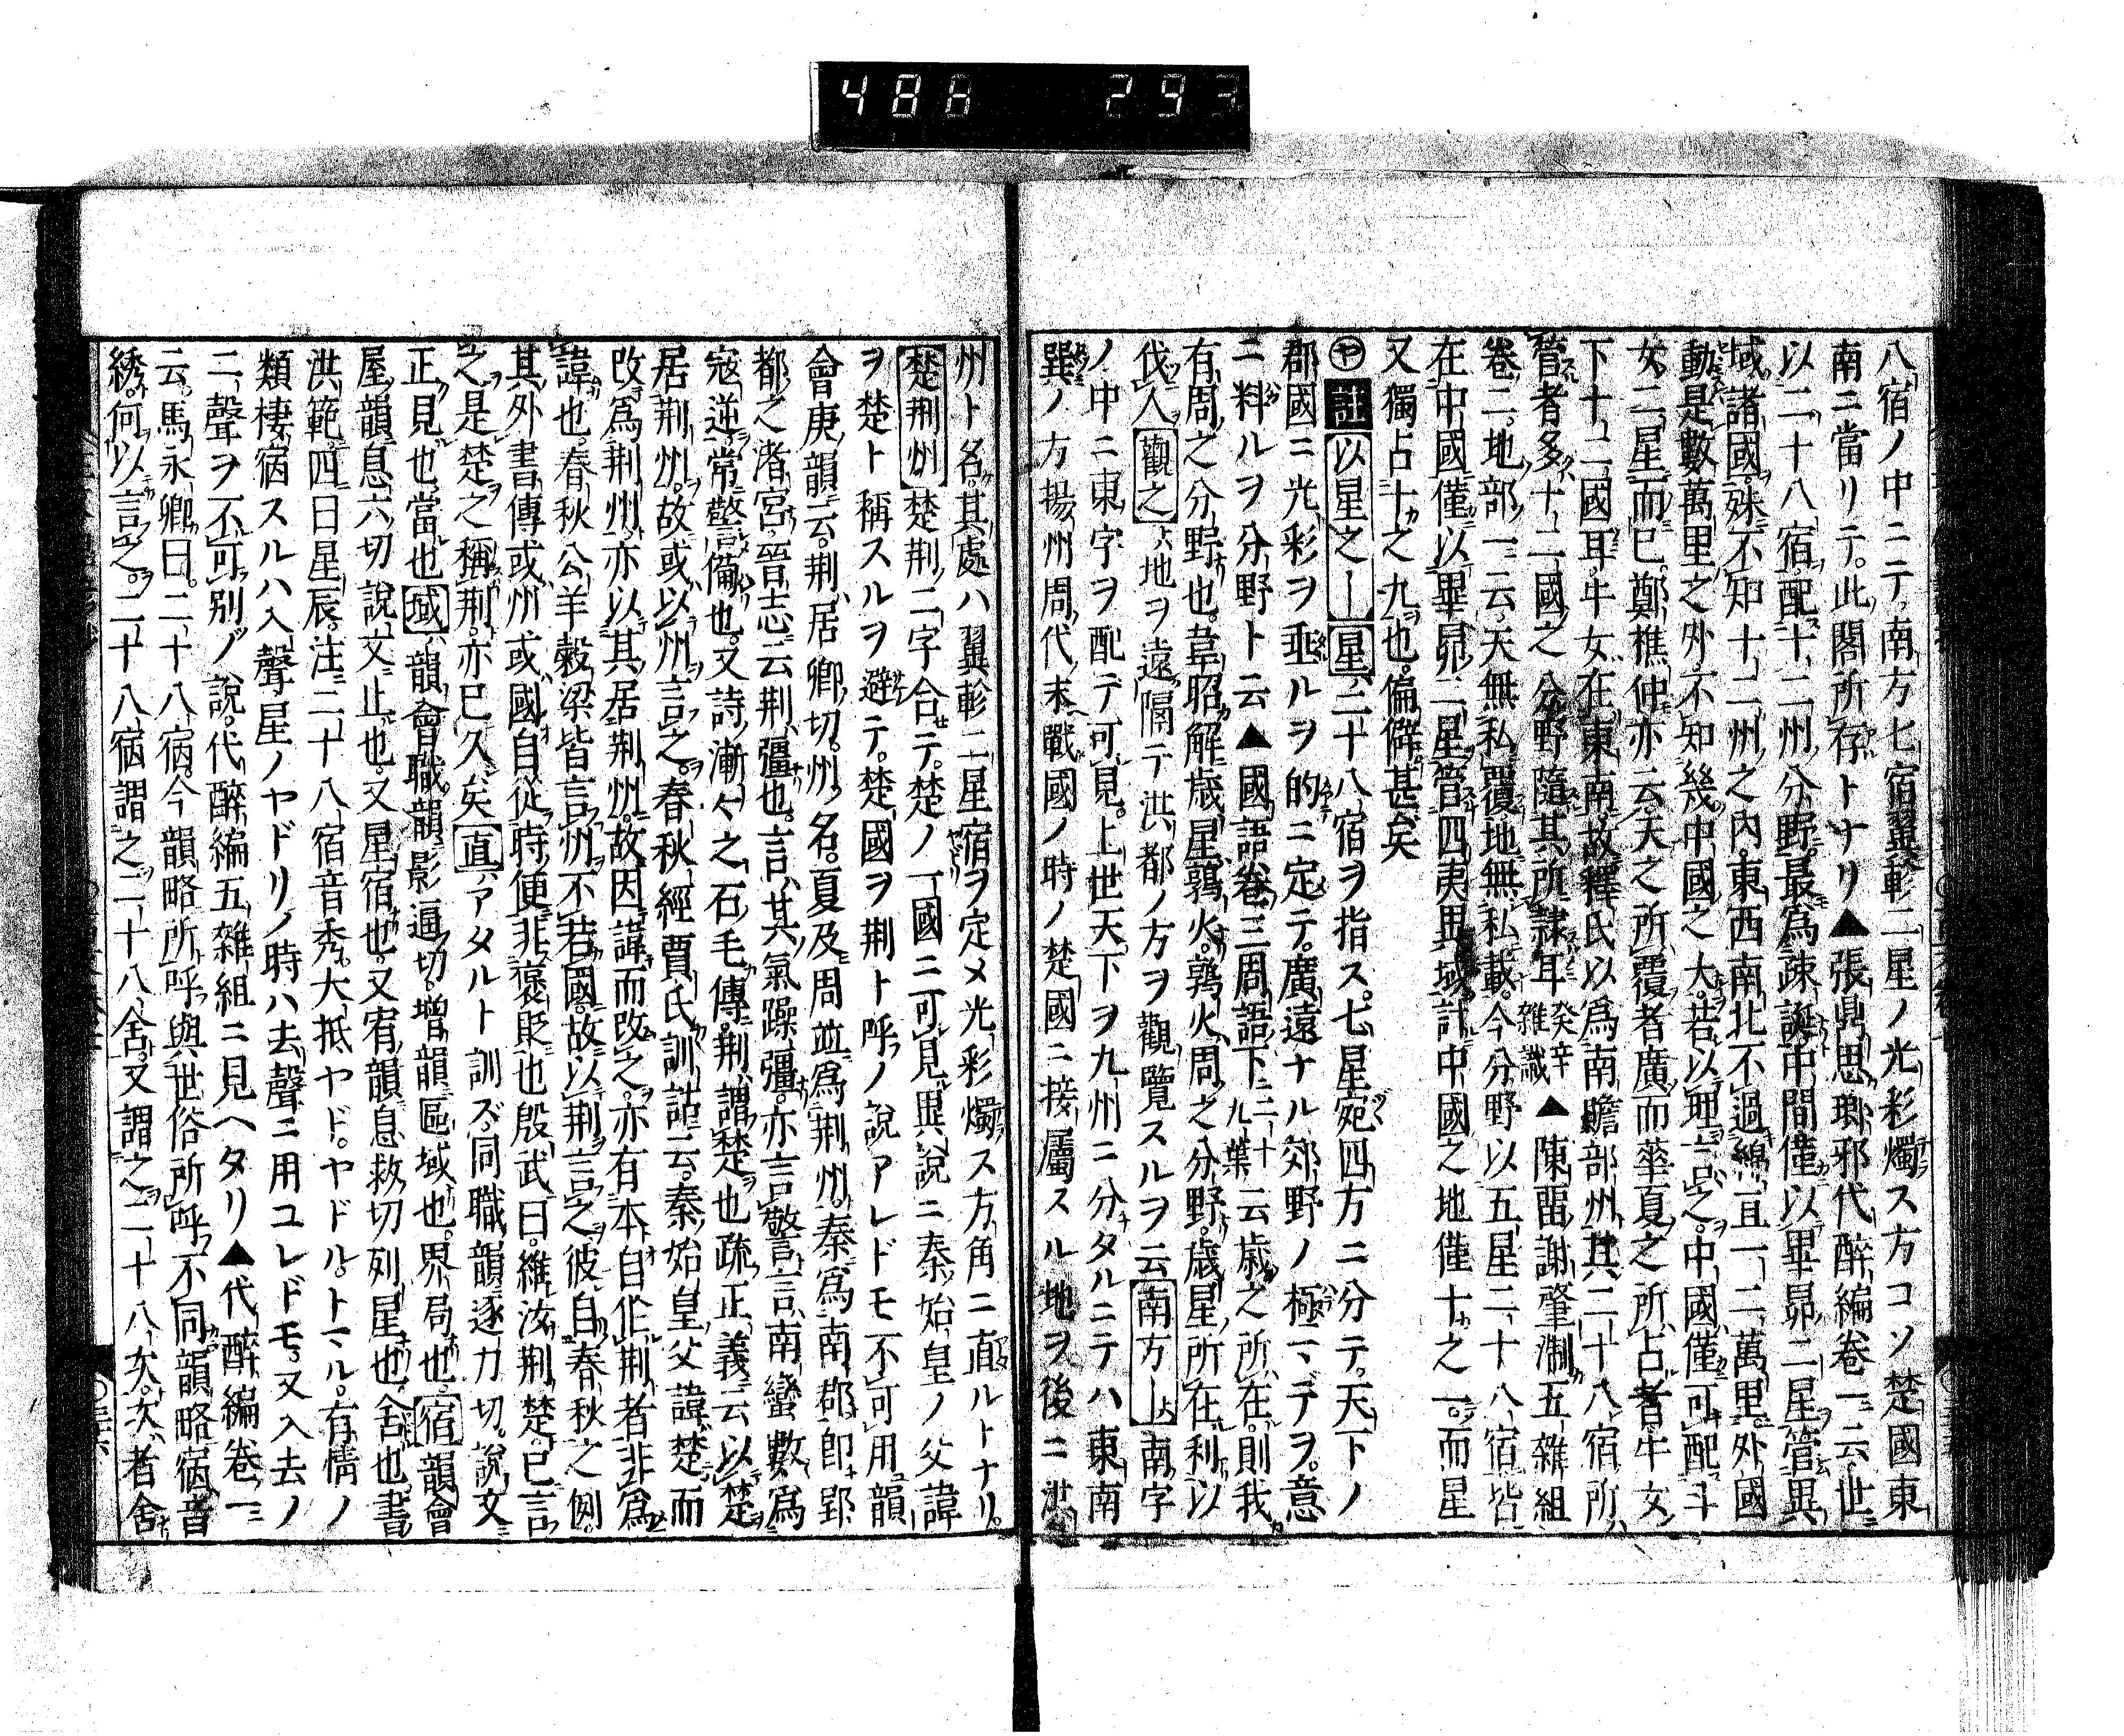 486 293
八宿ノ中ニテ南方七宿翼軫二星ノ光彩燭ス方コソ楚國東
南ニ當リテ此閣所存トナリ▲張鼎思瑯邪代醉編卷一云世
以二十八宿配十二州分野最爲疎誕中間僅以畢昴二星管異
域諸國殊不知十二州之內東西南北不過綿亘一二萬里外國
動是數萬里之外不知幾中國之大若以理言之中國僅可配斗
女二星而已鄭樵仲亦云天之所覆者廣而華夏之所占者牛女
下十二國耳牛女在東南故釋氏以爲南瞻部州其二十八宿所
管者多十二國之分野隨其所隷耳癸辛雜識▲陳留謝肇淛五雜組
卷二地部一云天無私覆地無私載今分野以五星二十八宿皆
在中國僅以畢昴二星管四夷異域計中國之地僅十之一而星
又獨占十之九也偏僻甚矣
ヤ 註 以星之｜星二十八宿ヲ指ス七星宛四方ニ分テ天下ノ
郡國ニ光彩ヲ垂ルヲ的ニ定テ廣遠ナル郊野ノ極マデヲ意
ニ料ルヲ分野ト云▲國語卷三周語下二十九葉云歳之所在則我
有周之分野也韋昭解歳星鶉火鶉火周之分野歳星所在利以
伐人 觀之 ハ地ヲ遠隔テ洪都ノ方ヲ觀覽スルヲ云 南方｜ハ南字
ノ中ニ東字ヲ配テ可見上世天下ヲ九州ニ分タルニテハ東南
巽ノ方揚州周代末戰國ノ時ノ楚國ニ接屬スル地ヲ後ニ洪
州ト名其處ハ翼軫二星宿ヲ定メ光彩燭ス方角ニ直ルトナリ
楚荆州 楚荆二字合テ楚ノ一國ニ可見異說ニ秦始皇ノ父諱
ヲ楚ト稱スルヲ避テ楚國ヲ荆ト呼ノ說アレドモ不可用韻
會庚韻云荆居卿切州名夏及周並爲荆州秦爲南郡卽郢
都之渚宮晉志云荆彊也言其氣躁彊亦言警言南蠻數爲
寇逆常警備也又詩漸々之石毛傳荆謂楚也疏正義云以楚
居荆州故或以州言之春秋經賈氏訓詁云秦始皇父諱楚而
改爲荆州亦以其居荆州故因諱而改之亦有本自作荆者非爲
諱也春秋公羊穀梁皆言州不若國故以荆言之彼自春秋之例
其外書傳或州或國自從時便非褒貶也殷武曰維汝荆楚已言
之是楚之稱荆亦已久矣 直 アタルト訓ズ同職韻逐力切說文
正見也當也 域 韻會職韻影逼切增韻區域也界局也 宿 韻會
屋韻息六切說文止也又星宿也又宥韻息救切列星也舍也書
洪範四曰星辰注二十八宿音秀大抵ヤドヤドルトマル有情ノ
類棲宿スルハ入聲星ノヤドリノ時ハ去聲ニ用コレドモ又入去ノ
二聲ヲ不可別ノ說代醉編五雜組ニ見ヘタリ▲代醉編卷一
云馬永卿曰二十八宿今韻略所呼與世俗所呼不同韻略宿音
綉何以言之二十八宿謂之二十八舍又謂之二十八次次者舍